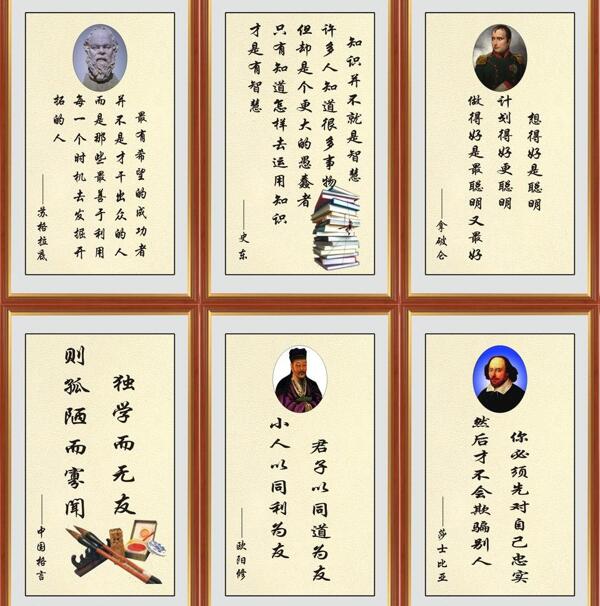 最有希望的成功者
并不是才干出众的人
而是那些最善于利用
每一个时机去发掘开
拓的人
——苏格拉底
知识并不就是智慧
许多人知道很多事物
但却是个更大的愚蠢者
只有知道怎样去运用知识
才是有智慧
——史东
想得好是聪明
计划得好更聪明
做得好是最聪明又最好
——拿破仑
独学而无友
则孤陋而寡闻
——中国格言
君子以同道为友
小人以同利为友
——欧阳修
你必须先对自己忠实
然后才不会欺骗别人
——莎士比亚